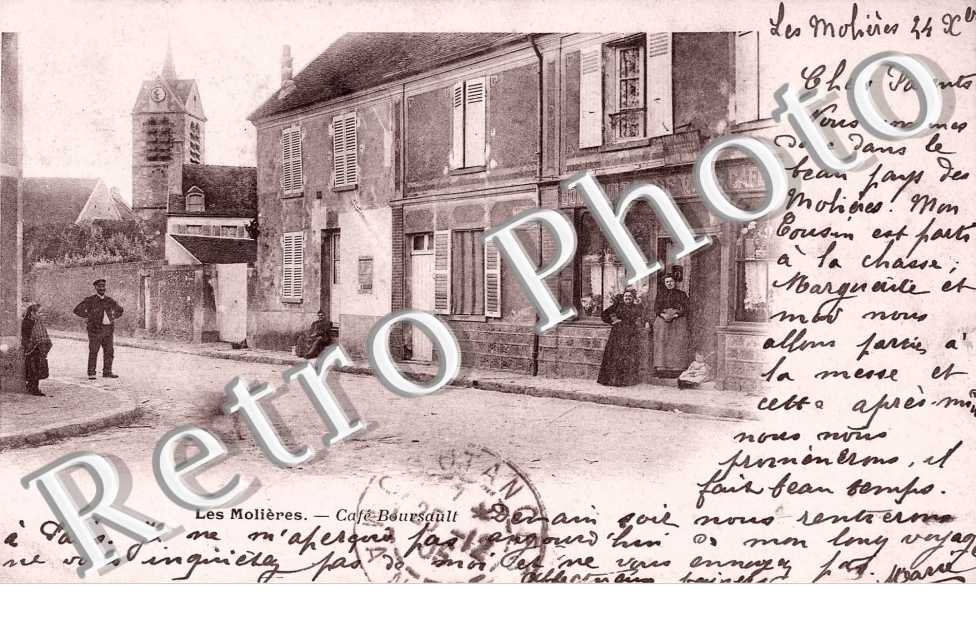 Les Molières 24 Xbre
Chers Parents
Nous sommes
donc dans le
beau pays des
Molières. Mon
Cousin est parti
à la chasse,
Marguerite et
moi nous
allons parties à
la messe et
cette après-mi
nous nous
promènerons, il
fait beau temps.
Demain soir nous rentrerons
à ne m'aperçois pas aujourd'hui de mon long voyage
ne vous inquiétez pas de moi et ne vous ennuyez pas. Marie
Affectueux baisers
Les Molières. — Café Boursault
Retro Photo